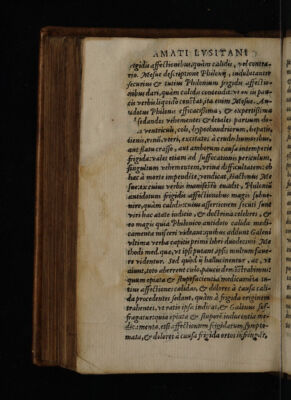 AMATI LVSITANI
frigidis affectionibus, quàm calidis, vel contra-
rio. Mesue descriptione Philonij, indubitanter
securius & tutius Philonium frigidis affectio-
nibus dari, quàm calidis concedit: vt ex in pau-
cis verbis liquidò constat, ita enim Mesue. An-
tidotus Philonij efficacissima, & expertissima
sedandas vehementes & letales partium do-
ventriculi, coli, hypochondriorum, hepatis,
lienis, renũ, vteri, excitatos à crudis humoribus,
aut flatu crasso, aut amborum causa intemperie
frigida: valet etiam ad suffocationis periculum,
singultum vehementem, vrinæ difficultatem: ab
hac à morte impendite, vendicat, Hactenus Me-
sue: ex cuius verbis manifestũ euadit, Philoniũ
antidotum frigidis affectionibus magis subue-
nire, quàm calidis: cuius assertionem secuti sunt
viri hac ætate indicio, & doctrina celebres, &
eo magis quia Philonico antidoto calida medi-
camenta misceri videant: quibus addunt Galeni
vltima verba capitis primi libri duodecimi Me-
thodi med. quæ, vt ipsi putant, ipsis multum faue-
re videntur. Sed quod ij hallucinentur, ac, vt
aiunt, toto aberrent cœlo, paucis demõstrabimus:
quum opiata & stupefacientia medicamenta in
tius affectiones calidas, & dolores à causa cali-
da procedentes sedant, quàm à frigida originem
trahentes, vt ratio ipsa indicat, & Galenus suf-
fragatur: quia opiata & stuporẽ inducentia me-
dicamenta, etsi affectionum frigidarum sympto-
mata, & dolores à causa frigida ortos infringit,